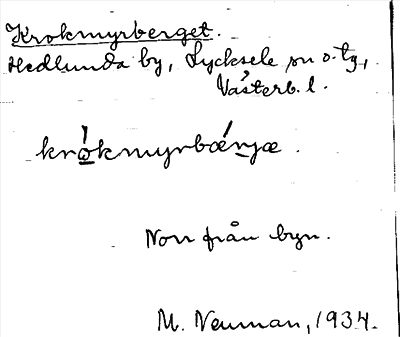 Krokmyrberget.
Hedlunda by, Lycksele sn o. tg,
Västerb. l.
krò̲kmyrbǽrjæ.
Norr från byn.
M. Neuman, 1934.